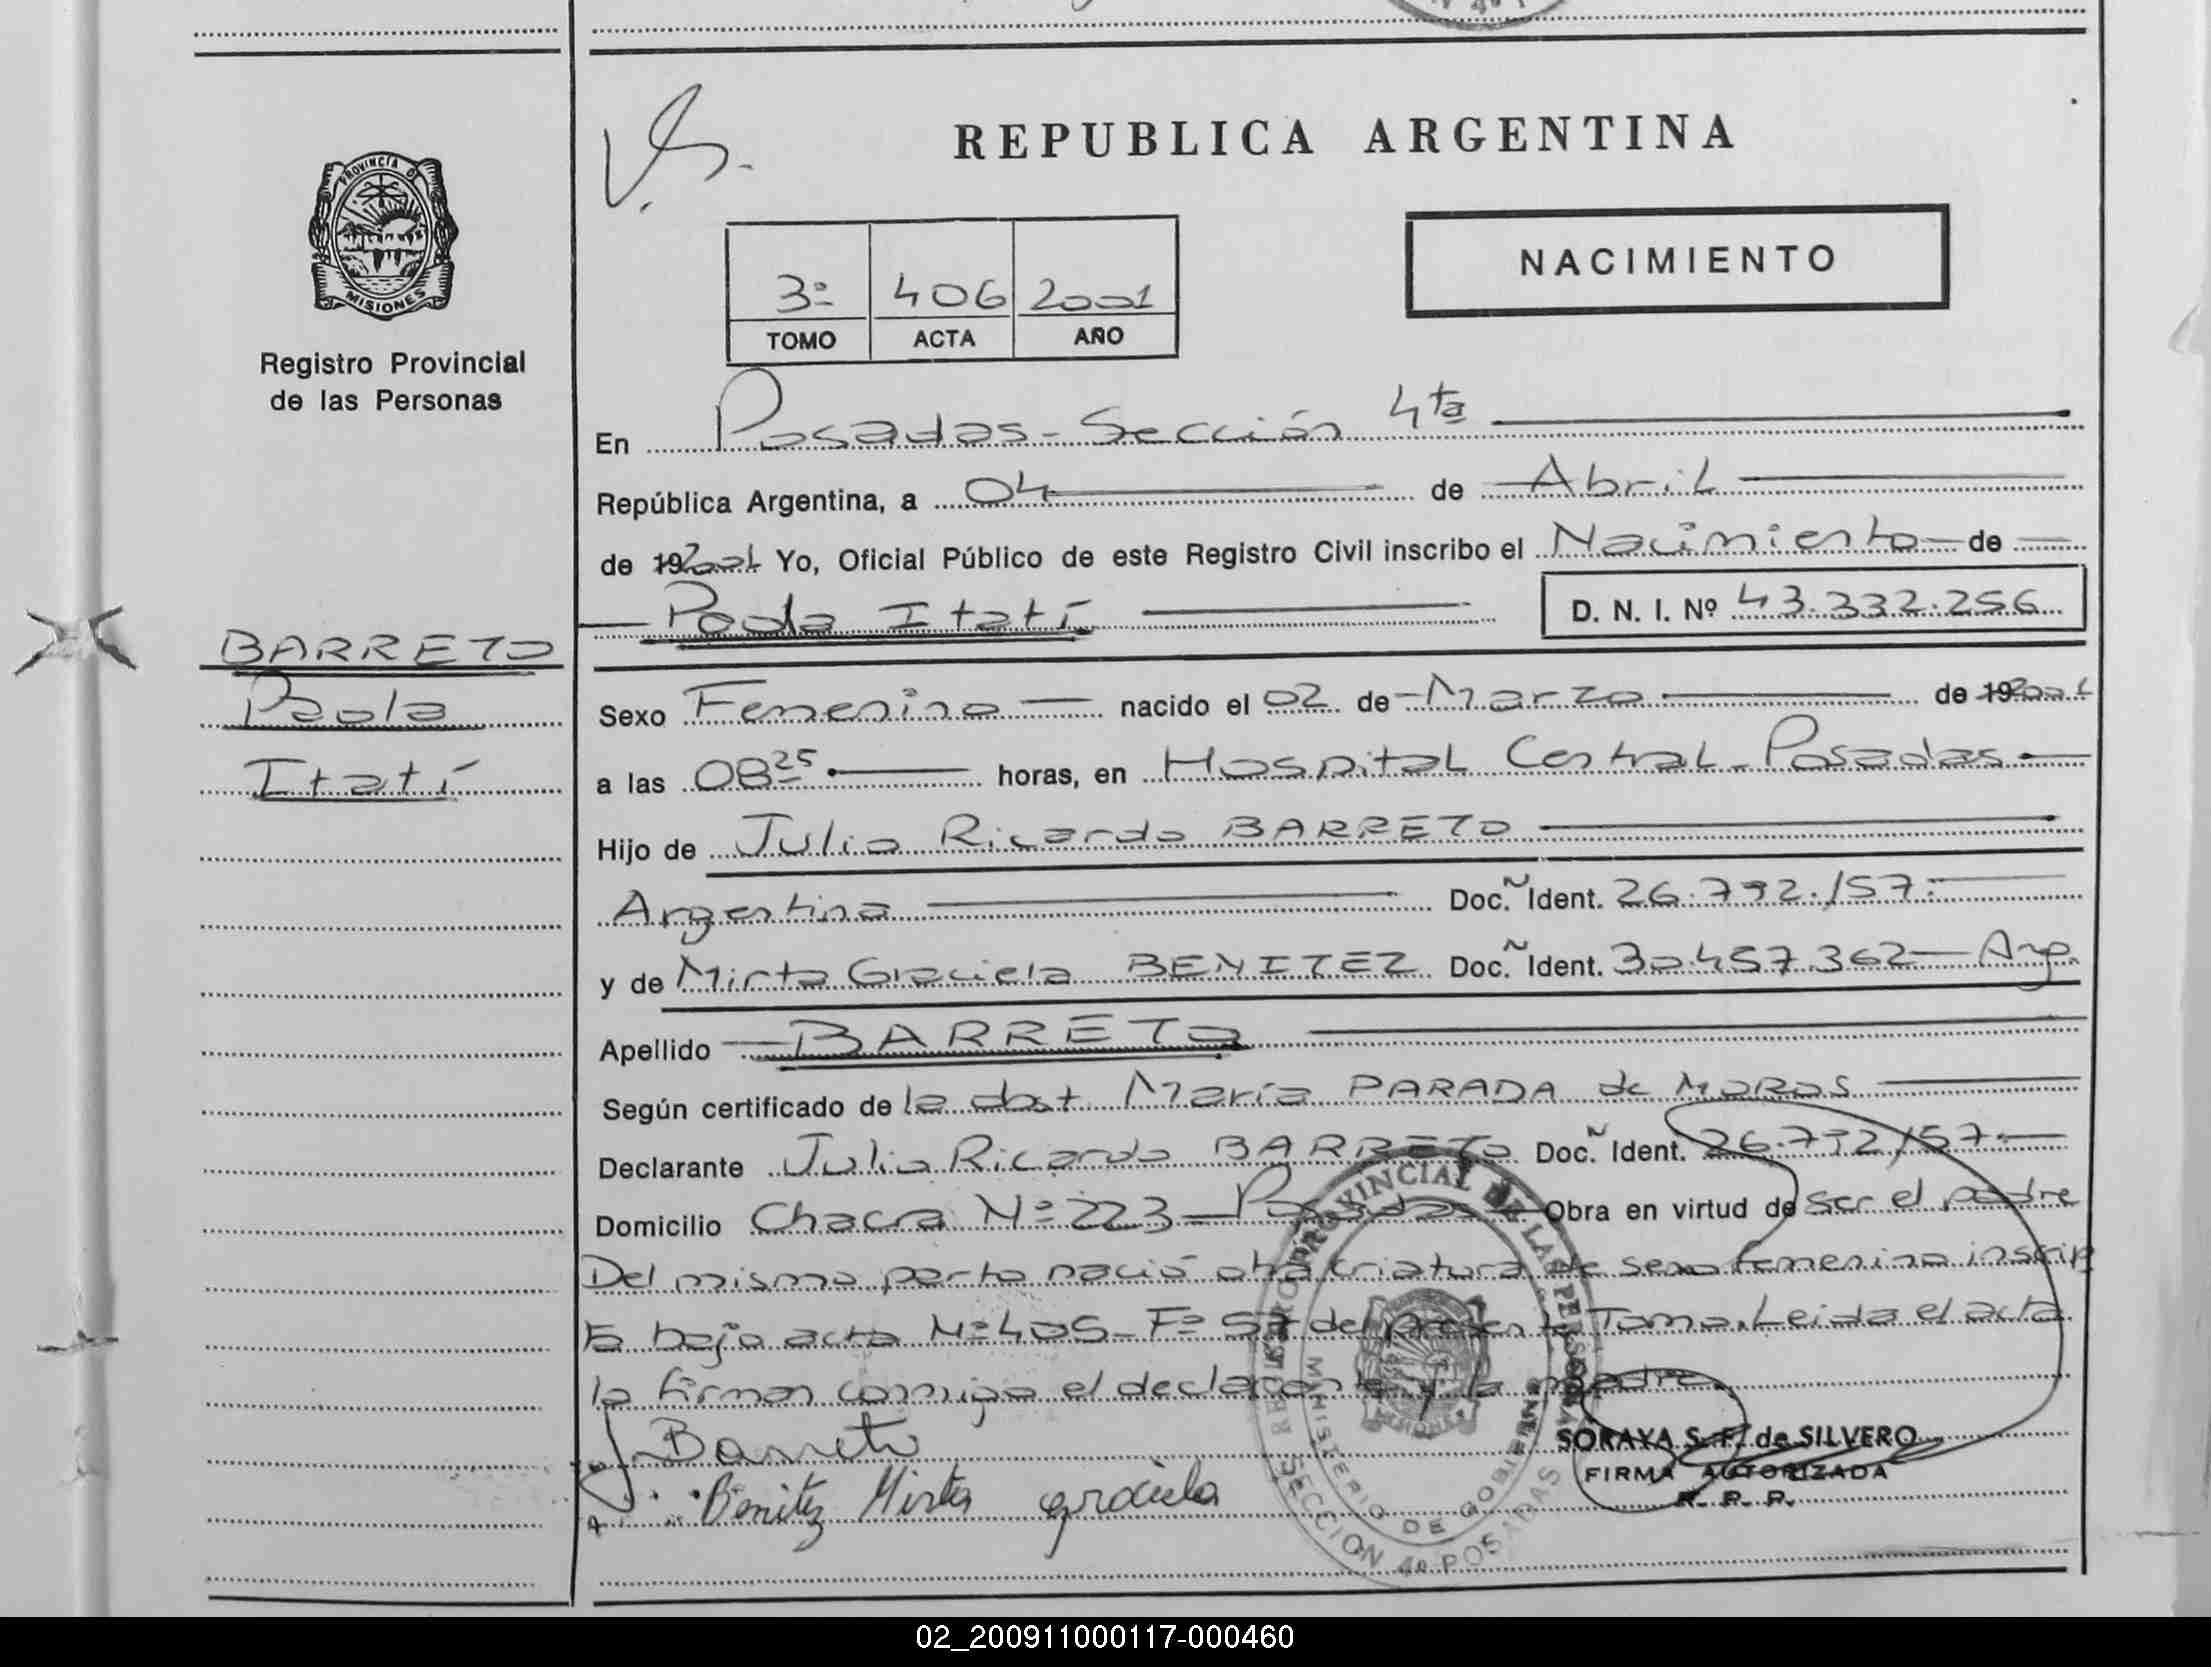 REPUBLICA ARGENTINA
PROVINCIA D
MISIONES
Registro Provincial
de las Personas
NACIMIENTO
3º 406 2001
TOMO ACTA AÑO
En Posadas - Sección 4ta
República Argentina, a 04 de Abril
de 192001 Yo, Oficial Público de este Registro Civil inscribo el Nacimiento de
Paola Itatí D. N. I. Nº 43.332.256
BARRETO
Paola
Itatí
Sexo Femenino nacido el 02 de Marzo de 192001
a las 08 25 horas, en Hospital Central - Posadas
Hijo de Julio Ricardo BARRETO
Argentina Doc. Ident. 26.792.157
y de Mirta Graciela BENITEZ Doc. Ident. 30.457.362 - Arg.
Apellido BARRETO
Según certificado de la obst. María PARADA de MORAS
Declarante Julio Ricardo BARRETO Doc. Ident. 26.792.157
Domicilio Chacra Nº 223 - Posadas Obra en virtud de ser el padre
Del mismo parto nació otra criatura de sexo femenino inscrip
ta bajo acta Nº 405 - Fº 57 del presente Tomo. Leida el acta
la firman conmigo el declarante y la madre
Barreto
Benitez Mirta graciela
SORAYA S. F. de SILVERO
FIRMA AUTORIZADA
R. P. P.
REGISTRO PROVINCIAL DE LAS PERSONAS
MINISTERIO DE GOBIERNO
SECCION 4º POSADAS
02_200911000117-000460